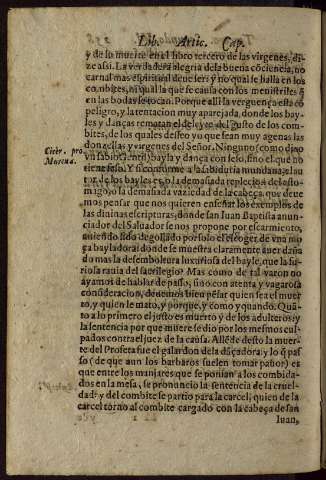 Lib. Artic. Cap.
y de su muerte en el libro tercero de las virgenes, di-
ze assi. La verdadera alegria de la buena cõciencia, no
carnal mas espiritual deue ser: y no qual se halla en los
combites, ni qual la que se causa con los menistriles q̃
en las bodas se tocan. Porque alli la verguença està cõ
peligro, y la tentacion muy aparejada, donde los bay-
les y danças rematan el deleyte del gusto de los com-
bites, de los quales desseo yo que sean muy agenas las
donzellas y virgenes del Señor. Ninguno (como dixo
Cicer. pro
vn sabio sentio) bayla y dança con seso, sino el que no
Murena.
tiene seso. Y si conforme a la sabiduria mundana, el au
tor de los bayles es o la demasiada replecion del esto-
mago, o la demasiada vaziedad de la cabeça, que deue
mos pensar que nos quieren enseñar los exemplos de
las diuinas escripturas, donde san Iuan Baptista anun-
ciador del Saluador se nos propone por escarmiento,
auiendo sido degollado por solo el escoger de vna mo
ça bayladora: donde se muestra claramente auer daña
do mas la desemboltura luxuriosa del bayle, que la fu-
riosa rauia del sacrilegio? Mas como de tal varon no
ayamos de hablar de passo, sino con atenta y vagarosa
consideracion, deuemos bien pesar quien sea el muer
to, y quien le mato, y porque, y como y quando. Quã-
to a lo primero el justo es muerto y de los adulteros: y
la sentencia por que muere se dio por los mesmos cul-
pados contra el juez de la causa. Allẽde desto la muer-
te del Profeta fue el galardon de la dãçadora: y lo q̃ paf
so (de que aun los barbaros suelen tomar pauor) es
que entre los manjares que se ponian a los combida-
dos en la mesa, se pronuncio la sentencia de la cruel-
dad: y del combite se partio para la carcel, quien de la
carcel torno al combite cargado con la cabeça de san
Iuan,